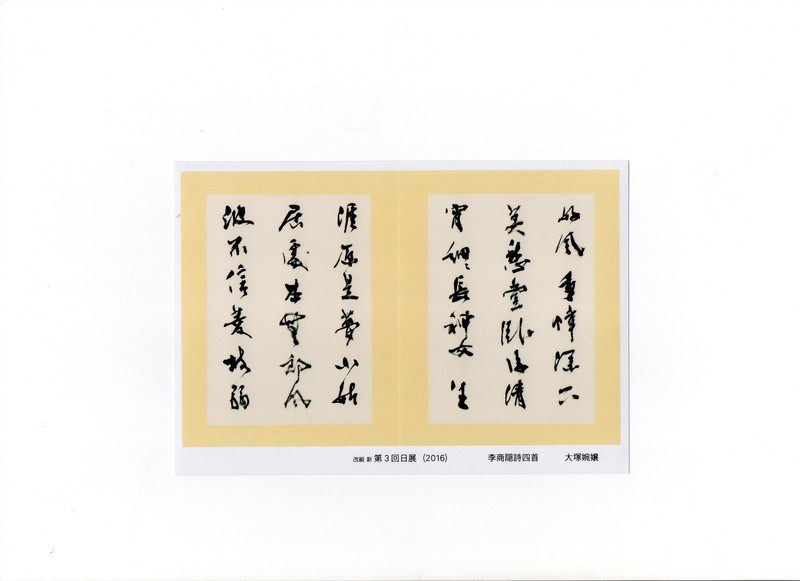 好風重幃深下
莫愁堂臥後清
宵細々長神女生
涯原是夢小姑
居處本無郎風
波不信菱枝弱
改組 新 第3回日展 (2016) 李商隠詩四首 大塚婉嬢